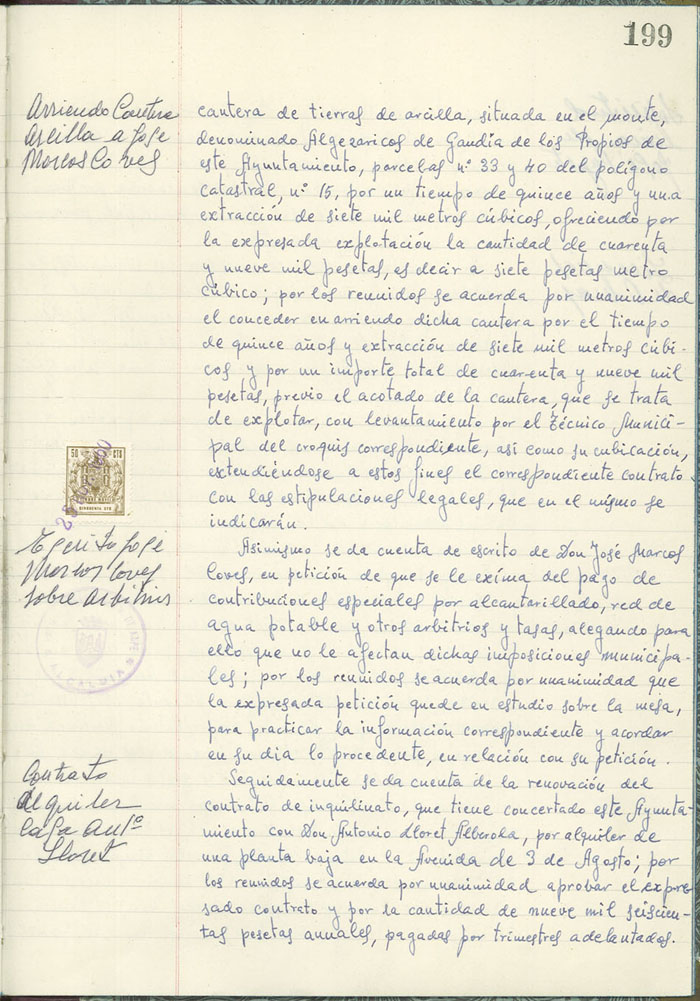 199
Arriendo Cantera
arcilla a José
Marcos Coves
cantera de tierras de arcilla, situada en el monte,
denominado Algezaricos de Gandía de los Propios de
este Ayuntamiento, parcelas nº 33 y 40 del polígono
catastral, nº 15, por un tiempo de quince años y una
extracción de siete mil metros cúbicos, ofreciendo por
la expresada explotación la cantidad de cuarenta
y nueve mil pesetas, es decir a siete pesetas metro
cúbico; por los reunidos se acuerda por unanimidad
el conceder en arriendo dicha cantera por el tiempo
de quince años y extracción de siete mil metros cúbi-
cos y por un importe total de cuarenta y nueve mil
pesetas, previo el acotado de la cantera, que se trata
de explotar, con levantamiento por el Técnico Munici-
pal del croquis correspondiente, así como su cubicación,
extendiéndose a estos fines el correspondiente contrato
con las estipulaciones legales, que en el mismo se
indicarán.
50 CTS
José
Marcos Coves
sobre arbitrios
Asimismo se da cuenta de escrito de Don José Marcos
Coves, en petición de que se le exima del pago de
contribuciones especiales por alcantarillado, red de
agua potable y otros arbitrios y tasas, alegando para
ello que no le afectan dichas imposiciones municipa-
les; por los reunidos se acuerda por unanimidad que
la expresada petición quede en estudio sobre la mesa,
para practicar la información correspondiente y acordar
en su dia lo procedente, en relación con su petición.
ALCALDIA
Contrato
alquiler
casa Antº
Lloret
Seguidamente se da cuenta de la renovación del
contrato de inquilinato, que tiene concertado este Ayunta-
miento con Don Antonio Lloret Alberola, por alquiler de
una planta baja en la Avenida de 3 de Agosto; por
los reunidos se acuerda por unanimidad aprobar el expre-
sado contrato y por la cantidad de nueve mil seiscien-
tas pesetas anuales, pagadas por trimestres adelantados.